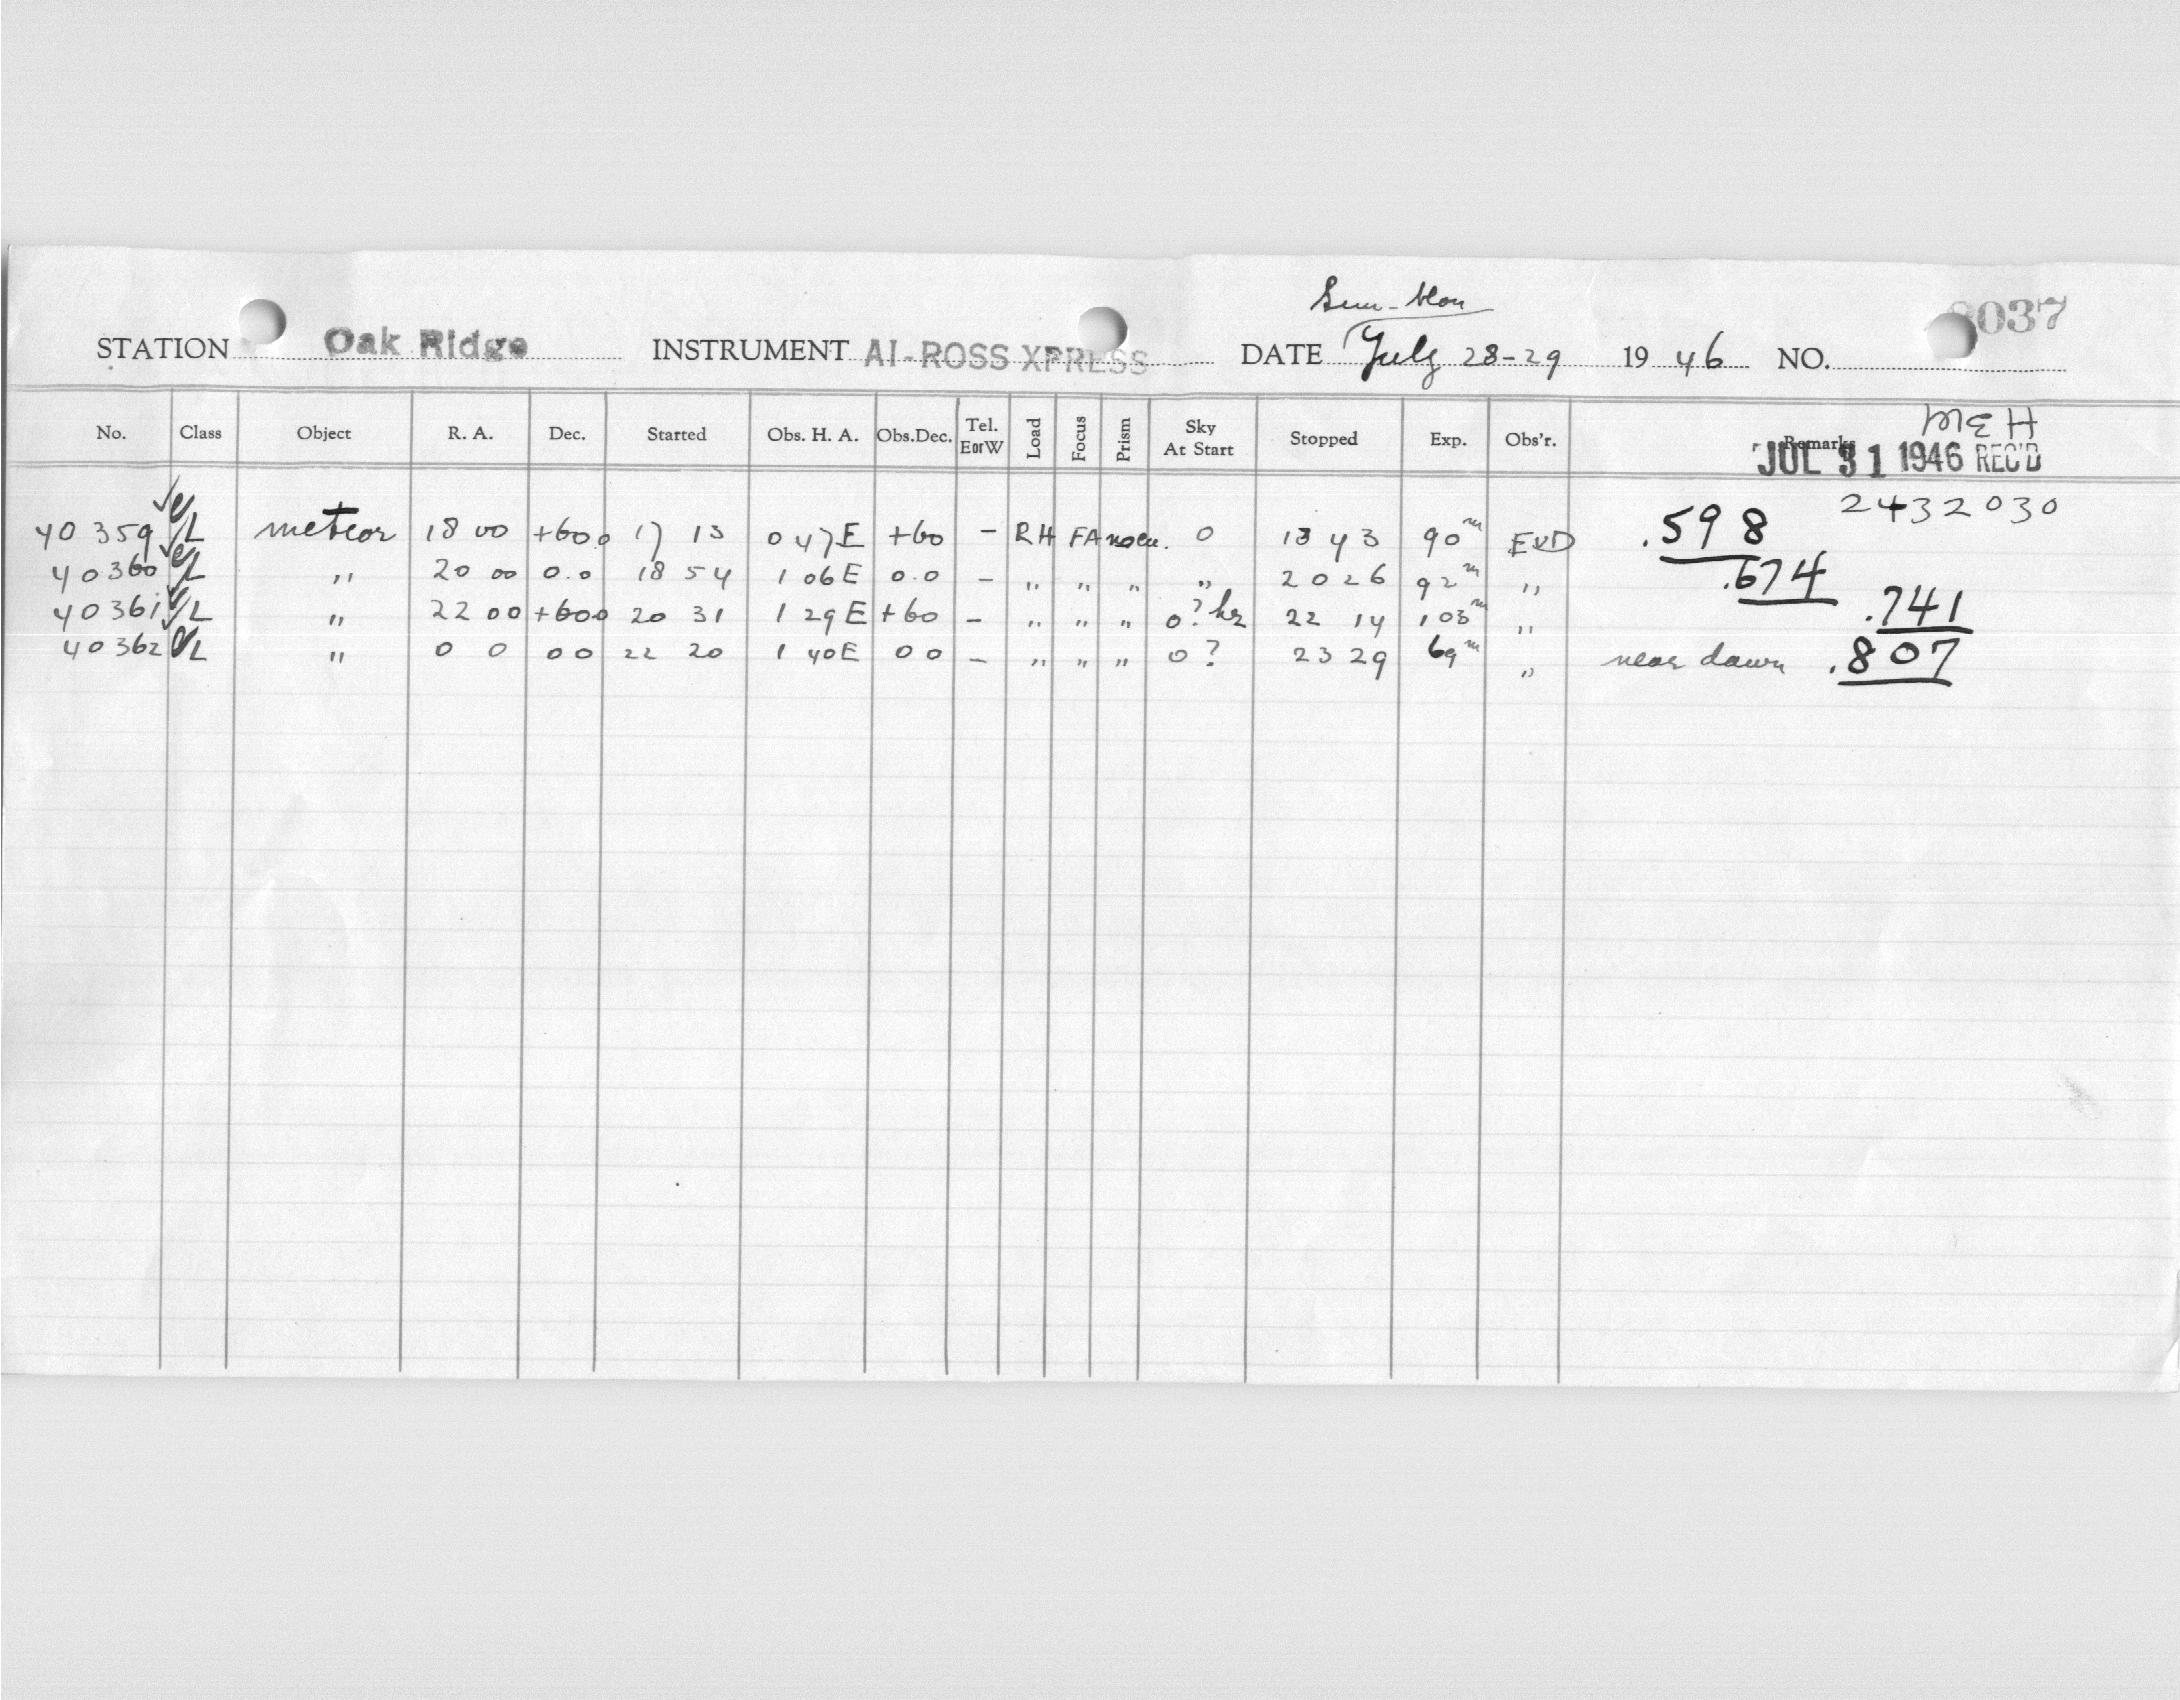 Sun-Mon
8037
STATION Oak Ridge INSTRUMENT AI-ROSS XPRESS DATE July 28-29 19 46 NO.
MEH
No. Class Object R. A. Dec. Started Obs. H. A. Obs.Dec. Tel. EorW Load Focus Prism Sky At Start Stopped Exp. Obs'r. Remarks
JUL 31 1946 REC'D
2432030
40359 L meteor 18 00 +60 0 17 13 0 47 E +60 - RH FA 0 18 43 90m EVD .598
40360 L " 20 00 0.0 18 54 1 06 E 0.0 - " " " " 20 26 92m " .674
40361 L " 22 00 +60 0 20 31 1 29 E +60 - " " " 0? hz 22 14 103m " .741
40362 L " 0 0 0 0 22 20 1 40 E 0 0 - " " " 0? 23 29 69m " near dawn .807